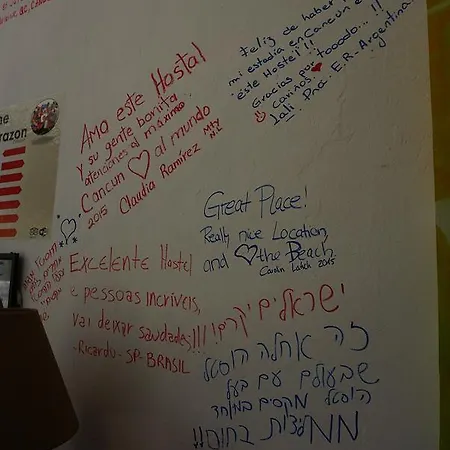 Amo este Hostal
Y su gente bonita
atenciones al máximo
Cancun ♡ al mundo
2015 Claudia Ramírez Mty
N.L
Feliz de haber
mi estadia en Cancún e
este Hostel!!!
Gracias por toooodo...!!
cariños
Lali Pna. E.R-Argentina
Great Place!
Really nice Location
and ♡ the Beach
2015
Excelente Hostel
e pessoas incríveis,
vai deixar saudades!!!
-Ricardo- SP-BRASIL
ישראלים יקרים!
זה אחלה הוסטל
שבעולם עם בעל
הוסטל מקסים במיוחד
ממליצות בחום!!
razon